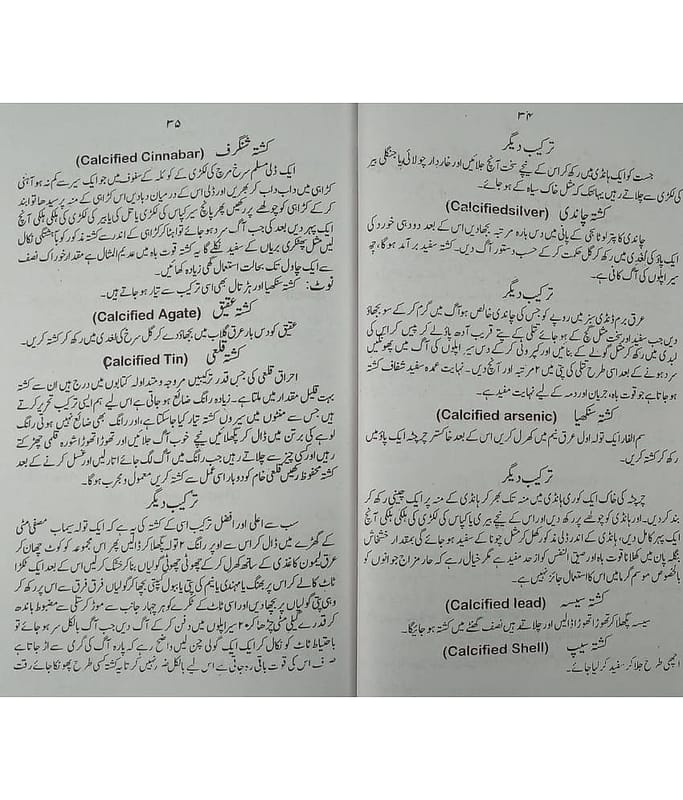 ۳۴
ترکیب دیگر
جست کو ایک ہانڈی میں رکھ کر اس کے نیچے سخت آنچ جلائیں اور خاردار چولائی یا جنگلی بیر
کی لکڑی سے چلاتے رہیں یہانتک کہ مثل خاک سیاہ کے ہو جائے۔
کشتہ چاندی (Calcifiedsilver)
چاندی کا پترا لو تانبی کے پانی میں دس بارہ مرتبہ بجھادیں اس کے بعد دودھی خورد کی
ایک پاؤ کی لغدی میں رکھ کر گل حکمت کر کے حسب دستور آگ دیں۔ کشتہ سفید برآمد ہوگا، چھ
سیر اپلوں کی آگ کافی ہے۔
ترکیب دیگر
عرق برم ڈنڈی سبز میں روپے کو جس کی چاندی خالص ہو آگ میں گرم کر کے سو بجھاؤ
دیں جب سفید اور سخت مثل گچ کے ہو جائے تلی کے پتے قریب آدھ پاؤ لے کر پیس کر ان کی
لبدی میں رکھ کر مثل گولے کے بنائیں اور کپروٹی کر کے دس سیر اپلوں کی آگ میں پھونکیں
سرد ہونے کے بعد اسی طرح تلی کی پتی میں ۲ مرتبہ اور آنچ دیں۔ نہایت عمدہ سفید شفاف کشتہ
ہو جاتا ہے جو قوت باہ، جریان اور دمہ کے لیے نہایت مفید ہے۔
کشتہ سنکھیا (Calcified arsenic)
سم الفار ایک تولہ اول عرق نیم میں کھرل کریں اس کے بعد خاکستر چرچٹہ ایک پاؤ میں
رکھ کر کشتہ کریں۔
ترکیب دیگر
چرچٹہ کی خاک ایک کوری ہانڈی میں منہ تک بھر کر ہانڈی کے منہ پر ایک چینی رکھ کر
بند کر دیں۔ اور ہانڈی کو چولھے پر رکھ دیں اور اس کے نیچے بیری یا کپاس کی لکڑی کی ہلکی ہلکی آنچ
ایک پہر کامل دیں، ہانڈی کے اندر ڈلی مذکور کھل کر مثل چونا کے سفید ہو جائے گی بمقدار خشخاش
بنگلہ پان میں کھلانا قوت باہ اور ضیق النفس کو ازحد مفید ہے مگر خیال رہے کہ حار مزاج جوانوں کو
بالخصوص موسم گرما میں اس کا استعمال جائز نہیں ہے۔
کشتہ سیسہ (Calcified lead)
سیسہ پگھلا کر تھوڑا تھوڑا ڈالیں اور چلاتے رہیں نصف گھنٹے میں کشتہ ہو جائیگا۔
کشتہ سیپ (Calcified Shell)
اچھی طرح جلا کر سفید کر لیا جائے۔
۳۵
کشتہ شنگرف (Calcified Cinnabar)
ایک ڈلی مسلم سرخ مرچ کی لکڑی کے کوئلہ کے سفوف میں جو ایک سیر سے کم نہ ہو آہنی
کڑاہی میں داب داب کر بھریں اور ڈلی اس کے درمیان دبا دیں اس کڑاہی کے منہ پر سیدھا توا بند
کر کے کڑاہی کو چولھے پر رکھیں پھر پانچ سیر کپاس کی لکڑی یا تل کی یا بیر کی لکڑی کی ہلکی ہلکی آنچ
ایک پہر دیں بعد کی جب آگ سرد ہو جائے توا ہٹا کر کڑاہی کے اندر سے کشتہ مذکور کو باہستگی نکال
لیں مثل پھٹکری بریاں کے سفید نکلے گا یہ کشتہ قوت باہ میں عدیم المثال ہے مقدار خوراک نصف
سے ایک چاول تک بحالت استعمال گھی زیادہ کھائیں۔
نوٹ: کشتہ سنکھیا اور ہڑتال بھی اسی ترکیب سے تیار ہو جاتے ہیں۔
کشتہ عقیق (Calcified Agate)
عقیق کو دس بار عرق گلاب میں بجھاؤ دے کر گل سرخ کی لغدی میں رکھ کر کشتہ کریں۔
کشتہ قلعی (Calcified Tin)
احراق قلعی کی جس قدر ترکیبیں مروجہ و متداولہ کتابوں میں درج ہیں ان سے کشتہ
بہت قلیل مقدار میں ملتا ہے۔ زیادہ رانگ ضائع ہو جاتی ہے اس لیے ہم ایسی ترکیب تحریر کرتے
ہیں جس سے منٹوں میں سیروں کشتہ تیار کیا جا سکتا ہے، اور رانگ بھی ضائع نہیں ہوتی رانگ
لوہے کی برتن میں ڈال کر پگھلائیں نیچے خوب آگ جلائیں اور تھوڑا تھوڑا شورہ قلمی چھڑکتے
رہیں اور کی چیز سے چلاتے رہیں جب رانگ میں آگ لگ جائے اتار لیں اور غسل کرنے کے بعد
کشتہ محفوظ رکھیں قلعی خام کو دوبارہ اسی عمل سے کشتہ کریں معمول و مجرب ہوگا۔
ترکیب دیگر
سب سے اعلیٰ اور افضل ترکیب اسی کے کشتہ کی یہ ہے کہ ایک تولہ سیماب مصفیٰ مٹی
کے گھڑے میں ڈال کر اس پر اوپر رانگ ۲ تولہ پگھلا کر ڈالیں پھر اس مجموعہ کو کوٹ چھان کر
عرق لیموں کاغذی کے ساتھ کھرل کر کے چھوٹی چھوٹی گولیاں بنا کر خشک کر لیں اس کے بعد ایک ٹکڑا
ٹاٹ کا لے کر اس پر بھنگ یا مہندی یا نیم کی پتی یا ببول کی پتی بچھا کر گولیاں فرق فرق سے اس پر رکھ کر
وہی پتی گولیاں پر بچھا دیں اور اسی ٹاٹ کے ٹکڑے کو ہر چہار جانب سے موڑ کر ستلی سے مضبوط باندھ
کر قدرے گیلی مٹی چڑھا کر ۲۰ سیر اپلوں میں دفن کر کے آگ دیں جب آگ بالکل سرد ہو جائے تو
باحتیاط ٹاٹ کو نکال کر ایک ایک گولی چن لیں واضح رہے کہ پارہ آگ کی گرمی سے اڑ جاتا ہے
صرف اس کی قوت باقی رہ جاتی ہے اس لیے بالکل ضرر نہیں کرتا یہ کشتہ کسی طرح پھونکا جائے رقت